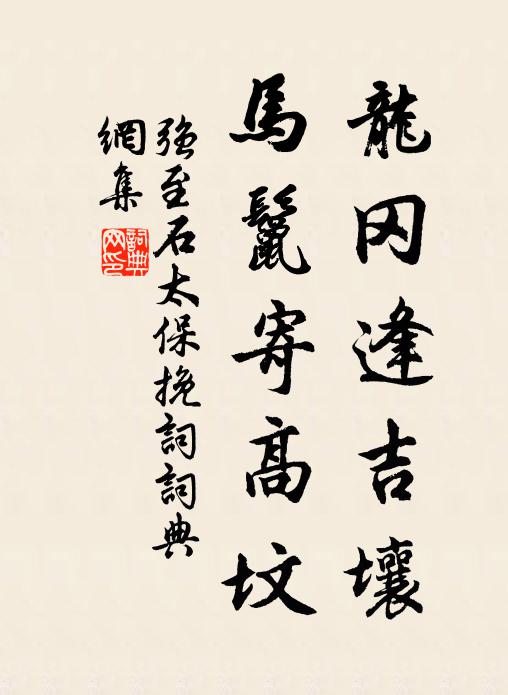 龍冈逢吉壤
馬鬣寄高坟
强至石太保挽詞詞典
網集
詞典網印